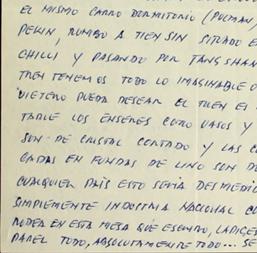 EL MISMO CARRO DORMITORIO (PULMAN,
PEKIN, RUMBO A TIEN SIN SITUADO E
CHILLI Y PASANDO POR TANG SHAN
TREN TENEMOS TODO LO IMAGINABLE
VIETERO PUEDA DESEAR EL TREN E
TABLE LOS ENSERES COMO VASOS Y
SON DE CRISTAL CORTADO Y LAS C
GADAS EN FUNDAS DE LINO SON D
CUALQUIER PAIS ESTO SERIA DESMEDI
SIMPLEMENTE INDUSTRIA NACIONAL CO
EN ESTA MESA QUE ESCRIBO,
TODO, ABSOLUTAMENTE TODO... SE